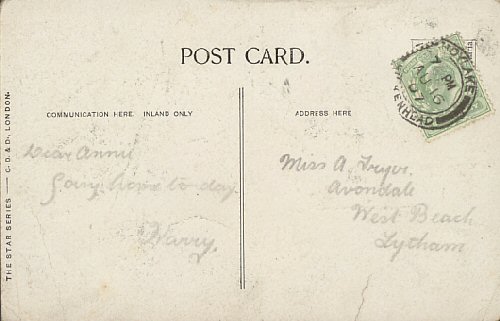 POST CARD.
COMMUNICATION HERE. INLAND ONLY
ADDRESS HERE
THE STAR SERIES — G. D. & D., LONDON.
HOYLAKE
7 PM
AU 16
07
Dear Annie
Going home to day
Harry.
Miss A. Fryer.
Avondale
West Beach
Lytham